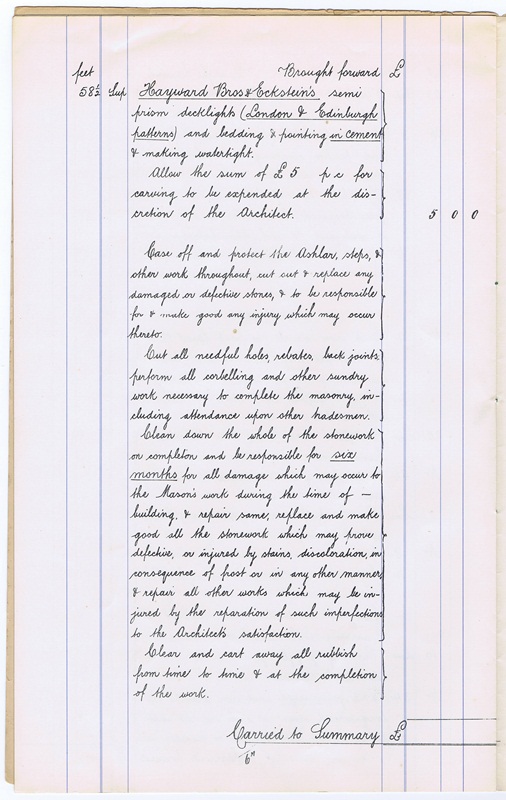 feet Brought forward £
58½ Sup Hayward Bros & Eckstein's semi
prism decklights (London & Edinburgh
patterns) and bedding & pointing in cement
& making watertight.
Allow the sum of £5 p c for
carving to be expended at the dis-
cretion of the Architect. 5 0 0
Case off and protect the Ashlar, steps, &
other work throughout, cut out & replace any
damaged or defective stones, & to be responsible
for & make good any injury which may occur
thereto.
Cut all needful holes, rebates, back joints,
perform all corbelling and other sundry
work necessary to complete the masonry, in-
cluding attendance upon other tradesmen.
Clean down the whole of the stonework
on completion and be responsible for six
months for all damage which may occur to
the Mason's work during the time of —
building, & repair same, replace and make
good all the stonework which may prove
defective, or injured by stains, discoloration, in
consequence of frost or in any other manner,
& repair all other works which may be in-
jured by the reparation of such imperfections
to the Architect's satisfaction.
Clear and cart away all rubbish
from time to time & at the completion
of the work.
Carried to Summary £